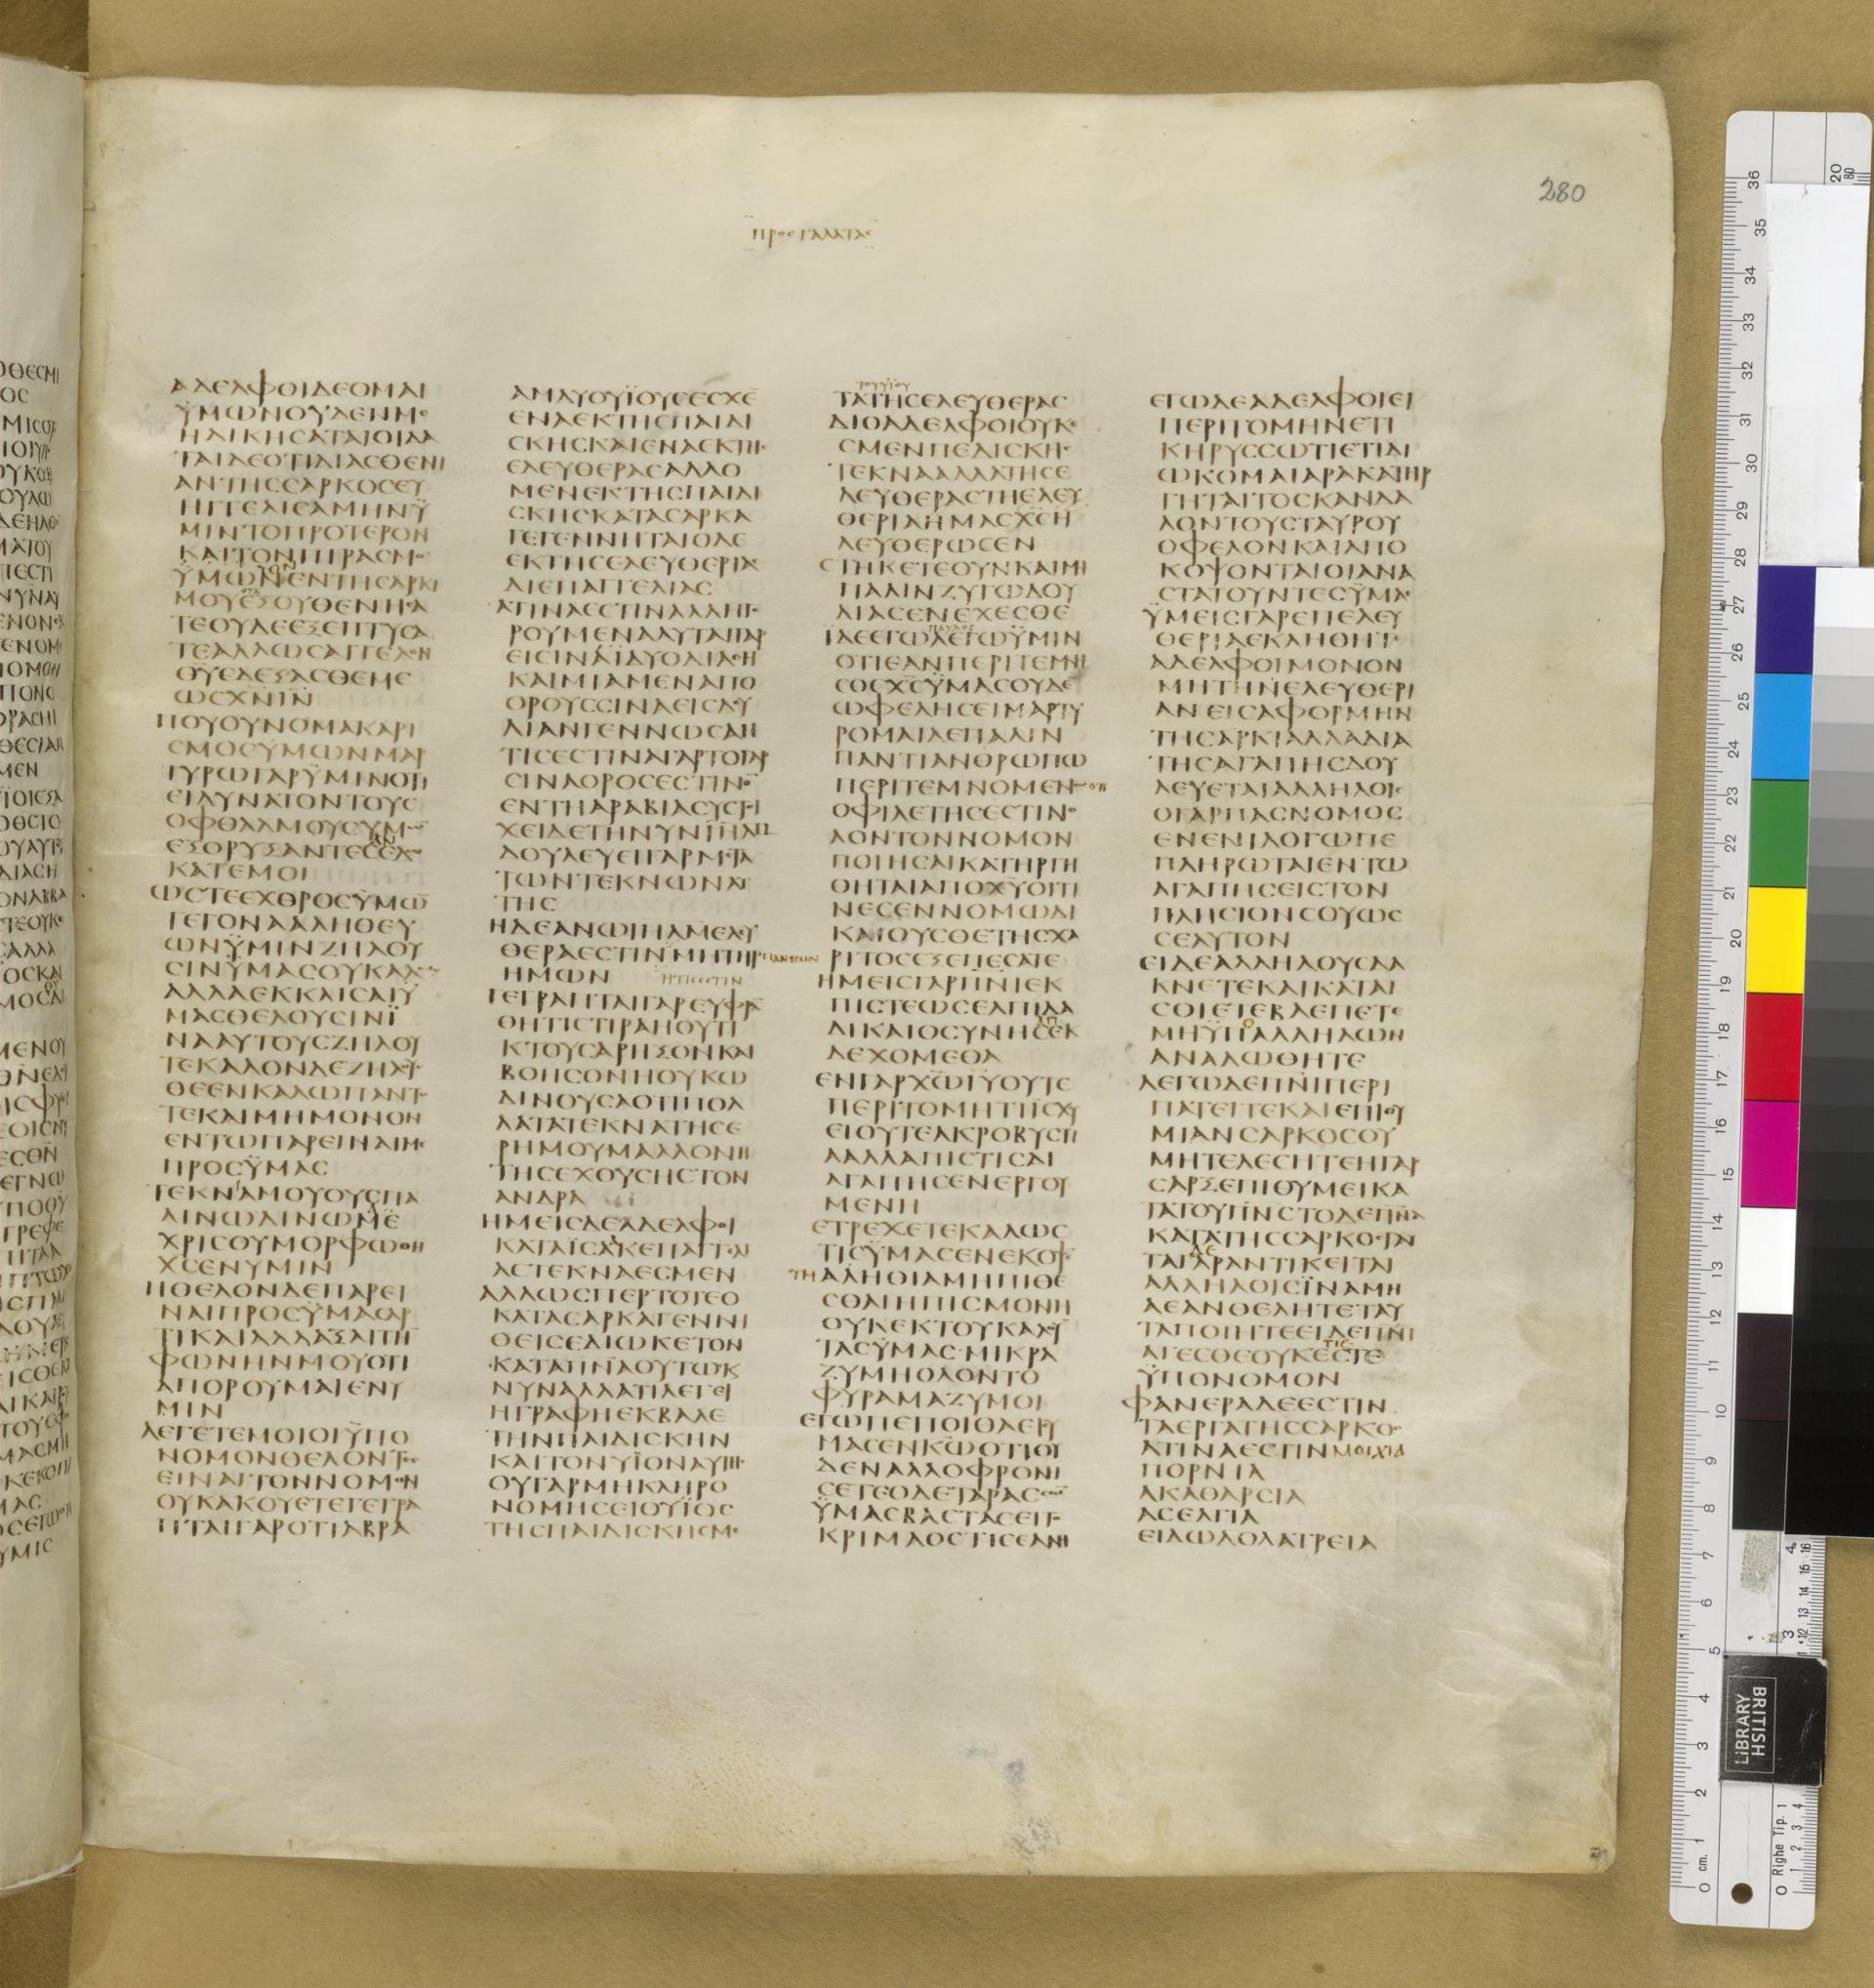 280
ΠΡΟΣ ΓΑΛΑΤΑΣ
ΑΔΕΛΦΟΙΔΕΟΜΑΙ
ΫΜΩΝΟΥΔΕΝΜΕ
ΗΔΙΚΗCΑΤΑΙΟΙΔΑ
ΤΑΙΔΕΟΤΙΔΙΑCΘΕΝΙ
ΑΝΤΗCCΑΡΚΟCΕΥ
ΗΓΓΕΛΙCΑΜΗΝΫ
ΜΙΝΤΟΠΡΟΤΕΡΟΝ
ΚΑΙΤΟΝΠΙΡΑCΜΟ
ΫΜΩΝΕΝΤΗCΑΡΚΙ
ΜΟΥΕΞΟΥΘΕΝΗCΑ
ΤΕΟΥΔΕΕΞΕΠΤΥCΑ
ΤΕΑΛΛΩCΑΓΓΕΛΟΝ
ΘΥΕΔΕΞΑCΘΕΜΕ
ΩCΧΝΙΝ
ΠΟΥΟΥΝΟΜΑΚΑΡΙ
CΜΟCΫΜΩΝΜΑΡ
ΤΥΡΩΓΑΡΫΜΙΝΟΤΙ
ΕΙΔΥΝΑΤΟΝΤΟΥC
ΟΦΘΑΛΜΟΥCΥΜΩΝ
ΕΞΟΡΥΞΑΝΤΕCΕΔΩ
ΚΑΤΕΜΟΙ
ΩCΤΕΕΧΘΡΟCΫΜΩ
ΓΕΓΟΝΑΑΛΗΘΕΥ
ΩΝΫΜΙΝΖΗΛΟΥ
CΙΝΫΜΑCΟΥΚΑΛΩC
ΑΛΛΑΕΚΚΛΙCΑΙΫ
ΜΑCΘΕΛΟΥCΙΝΪ
ΝΑΑΥΤΟΥCΖΗΛΟΥ
ΤΕΚΑΛΟΝΔΕΖΗΛΟΥ
ΘΕΕΝΚΑΛΩΠΑΝΤΟ
ΤΕΚΑΙΜΗΜΟΝΟΝ
ΕΝΤΩΠΑΡΕΙΝΑΙΜΕ
ΠΡΟCΫΜΑC
ΤΕΚΝΑΜΟΥΟΥCΠΑ
ΛΙΝΩΔΙΝΩΜΕ
ΧΡΙCΟΥΜΟΡΦΩΘΗ
ΧCΕΝΥΜΙΝ
ΗΘΕΛΟΝΔΕΠΑΡΕΙ
ΝΑΙΠΡΟCΫΜΑCΑΡ
ΤΙΚΑΙΑΛΛΑΞΑΙΤΗ
ΦΩΝΗΝΜΟΥΟΤΙ
ΑΠΟΡΟΥΜΑΙΕΝΥ
ΜΙΝ
ΛΕΓΕΤΕΜΟΙΟΙΫΠΟ
ΝΟΜΟΝΘΕΛΟΝΤΕC
ΕΙΝΑΙΤΟΝΝΟΜΟΝ
ΟΥΚΑΚΟΥΕΤΕΓΕΓΡΑ
ΠΤΑΙΓΑΡΟΤΙΑΒΡΑ
ΑΜΔΥΟΥΪΟΥCΕCΧΕ
ΕΝΑΕΚΤΗCΠΑΙΔΙ
CΚΗCΚΑΙΕΝΑΕΚΤΗC
ΕΛΕΥΘΕΡΑCΑΛΛΟ
ΜΕΝΕΚΤΗCΠΑΙΔΙ
CΚΗCΚΑΤΑCΑΡΚΑ
ΓΕΓΕΝΝΗΤΑΙΟΔΕ
ΕΚΤΗCΕΛΕΥΘΕΡΙΑC
ΔΙΕΠΑΓΓΕΛΙΑC
ΑΤΙΝΑΕCΤΙΝΑΛΛΗΓΟ
ΡΟΥΜΕΝΑΑΥΤΑΙΓΑΡ
ΕΙCΙΝΑΪΔΥΟΔΙΑΘΗ
ΚΑΙΜΙΑΜΕΝΑΠΟ
ΟΡΟΥCCΙΝΑΕΙCΔΟΥ
ΛΙΑΝΓΕΝΝΩCΑΗ
ΤΙCΕCΤΙΝΑΓΑΡΤΟΓΑΡ
CΙΝΑΟΡΟCΕCΤΙΝ
ΕΝΤΗΑΡΑΒΙΑCΥCΤΟΙ
ΧΕΙΔΕΤΗΝΥΝΪΗΛΜ
ΔΟΥΛΕΥΕΙΓΑΡΜΕΤΑ
ΤΩΝΤΕΚΝΩΝΑΥ
ΤΗC
ΗΔΕΑΝΩΙΗΛΜΕΛΕΥ
ΘΕΡΑΕCΤΙΝΜΗΤΗΡ ΠΑΝΤΩΝ
ΗΜΩΝ ΗΤΙCΕCΤΙΝ
ΓΕΓΡΑΠΤΑΙΓΑΡΕΥΦΡΑ
ΘΗΤΙCΤΙΡΑΗΟΥΤΙ
ΚΤΟΥCΑΡΗΞΟΝΚΑΙ
ΒΟΗCΟΝΗΟΥΚΩ
ΔΙΝΟΥCΑΟΤΙΠΟΛ
ΛΑΤΑΤΕΚΝΑΤΗCΕ
ΡΗΜΟΥΜΑΛΛΟΝΗ
ΤΗCΕΧΟΥCΗCΤΟΝ
ΑΝΔΡΑ
ΗΜΕΙCΔΕΑΔΕΛΦΟΙ
ΚΑΤΑΪCΑΚΕΠΑΓΓΕΛΙ
ΑCΤΕΚΝΑΕCΜΕΝ
ΑΛΛΩCΠΕΡΤΟΤΕΟ
ΚΑΤΑCΑΡΚΑΓΕΝΝΙ
ΘΕΙCΕΔΙΩΚΕΤΟΝ
ΚΑΤΑΠΝΑΟΥΤΩΚ
ΝΥΝΑΛΛΑΤΙΛΕΓΕΙ
ΗΓΡΑΦΗΕΚΒΑΛΕ
ΤΗΝΠΑΙΔΙCΚΗΝ
ΚΑΙΤΟΝΥΪΟΝΑΥΤΗC
ΟΥΓΑΡΜΗΚΛΗΡΟ
ΝΟΜΗCΕΙΟΥΪΟC
ΤΗCΠΑΙΔΙCΚΗCΜΕ
ΤΟΥΥΪΟΥ
ΤΑΤΗCΕΛΕΥΘΕΡΑC
ΔΙΟΑΔΕΛΦΟΙΟΥΚΕ
CΜΕΝΠΕΔΙCΚΗC
ΤΕΚΝΑΑΛΛΑΤΗCΕ
ΛΕΥΘΕΡΑCΤΗΕΛΕΥ
ΘΕΡΙΑΗΜΑCΧCΗ
ΛΕΥΘΕΡΩCΕΝ
CΤΗΚΕΤΕΟΥΝΚΑΙΜΗ
ΠΑΛΙΝΖΥΓΩΔΟΥ
ΛΙΑCΕΝΕΧΕCΘΕ
ΠΑΥΛΟC
ΪΔΕΕΓΩΛΕΓΩΫΜΙΝ
ΟΤΙΕΑΝΠΕΡΙΤΕΜΝΗ
CΘΕΧCΫΜΑCΟΥΔΕ
ΩΦΕΛΗCΕΙΜΑΡΤΥ
ΡΟΜΑΙΔΕΠΑΛΙΝ
ΠΑΝΤΙΑΝΘΡΩΠΩ
ΠΕΡΙΤΕΜΝΟΜΕΝΩΟΤΙ
ΟΦΙΛΕΤΗCΕCΤΙΝΟ
ΛΟΝΤΟΝΝΟΜΟΝ
ΠΟΙΗCΑΙΚΑΤΗΡΓΗ
ΘΗΤΑΙΑΠΟΧΥΟΙΤΙ
ΝΕCΕΝΝΟΜΩΔΙ
ΚΑΙΟΥCΘΕΤΗCΧΑ
ΡΙΤΟCΕΞΕΠΕCΑΤΕ
ΗΜΕΙCΓΑΡΠΝΙΕΚ
ΠΙCΤΕΩCΕΛΠΙΔΑ
ΔΙΚΑΙΟCΥΝΗCΕΚ
ΔΕΧΟΜΕΘΑ
ΕΝΓΑΡΧΩΙΥΟΥΤΕ
ΠΕΡΙΤΟΜΗΤΙΙCΧΥ
ΕΙΟΥΤΕΑΚΡΟΒΥCΤΙ
ΑΑΛΛΑΠΙCΤΙCΔΙ
ΑΓΑΠΗCΕΝΕΡΓΟΥ
ΜΕΝΗ
ΕΤΡΕΧΕΤΕΚΑΛΩC
ΤΙCΫΜΑCΕΝΕΚΟΨΕ
ΤΗΑΛΗΘΙΑΜΗΠΙΘΕ
CΘΑΙΗΠΙCΜΟΝΗ
ΟΥΚΕΚΤΟΥΚΑΛΟΥ
ΤΑCΫΜΑCΜΙΚΡΑ
ΖΥΜΗΟΛΟΝΤΟ
ΦΥΡΑΜΑΖΥΜΟΙ
ΕΓΩΠΕΠΟΙΘΑΕΙCΥ
ΜΑCΕΝΚΩΟΤΙΟΥ
ΔΕΝΑΛΛΟΦΡΟΝΗ
CΕΤΕΟΔΕΤΑΡΑCCΩΝ
ΫΜΑCΒΑCΤΑCΕΙΤΟ
ΚΡΙΜΑΟCΤΙCΕΑΝΗ
ΕΓΩΔΕΑΔΕΛΦΟΙΕΙ
ΠΕΡΙΤΟΜΗΝΕΤΙ
ΚΗΡΥCCΩΤΙΕΤΙΔΙ
ΩΚΟΜΑΙΑΡΑΚΑΤΗΡ
ΓΗΤΑΙΤΟCΚΑΝΔΑ
ΛΟΝΤΟΥCΤΑΥΡΟΥ
ΟΦΕΛΟΝΚΑΙΑΠΟ
ΚΟΨΟΝΤΑΙΟΙΑΝΑ
CΤΑΤΟΥΝΤΕCΫΜΑC
ΫΜΕΙCΓΑΡΕΠΕΛΕΥ
ΘΕΡΙΑΕΚΛΗΘΗΤΕ
ΑΔΕΛΦΟΙΜΟΝΟΝ
ΜΗΤΗΝΕΛΕΥΘΕΡΙ
ΑΝΕΙCΑΦΟΡΜΗΝ
ΤΗCΑΡΚΙΑΛΛΑΔΙΑ
ΤΗCΑΓΑΠΗCΔΟΥ
ΛΕΥΕΤΑΙΑΛΛΗΛΟΙC
ΟΓΑΡΠΑCΝΟΜΟC
ΕΝΕΝΙΛΟΓΩΠΕ
ΠΛΗΡΩΤΑΙΕΝΤΩ
ΑΓΑΠΗCΕΙCΤΟΝ
ΠΛΗCΙΟΝCΟΥΩC
CΕΑΥΤΟΝ
ΕΙΔΕΑΛΛΗΛΟΥCΔΑ
ΚΝΕΤΕΚΑΙΚΑΤΑΙ
CΘΙΕΤΕΒΛΕΠΕΤΕ
ΜΗΫΠΑΛΛΗΛΩΝ
ΑΝΑΛΩΘΗΤΕ
ΛΕΓΩΔΕΠΝΙΠΕΡΙ
ΠΑΤΕΙΤΕΚΑΙΕΠΙΘΥ
ΜΙΑΝCΑΡΚΟCΟΥ
ΜΗΤΕΛΕCΗΤΕΗΓΑΡ
CΑΡΞΕΠΙΘΥΜΕΙΚΑ
ΤΑΤΟΥΠΝCΤΟΔΕΠΝΑ
ΚΑΤΑΤΗCCΑΡΚΟCΤΑΥ
ΤΑΓΑΡΑΝΤΙΚΕΙΤΑΙ
ΑΛΛΗΛΟΙCΪΝΑΜΗ
ΑΕΑΝΘΕΛΗΤΕΤΑΥ
ΤΑΠΟΙΗΤΕΕΙΔΕΠΝΙ
ΑΓΕCΘΕΟΥΚΕCΤΕ
ΫΠΟΝΟΜΟΝ
ΦΑΝΕΡΑΔΕΕCΤΙΝ
ΤΑΕΡΓΑΤΗCCΑΡΚΟC
ΑΤΙΝΑΕCΤΙΝΜΟΙΧΙΑ
ΠΟΡΝΙΑ
ΑΚΑΘΑΡCΙΑ
ΑCΕΛΓΙΑ
ΕΙΔΩΛΟΛΑΤΡΕΙΑ
BRITISH
LIBRARY